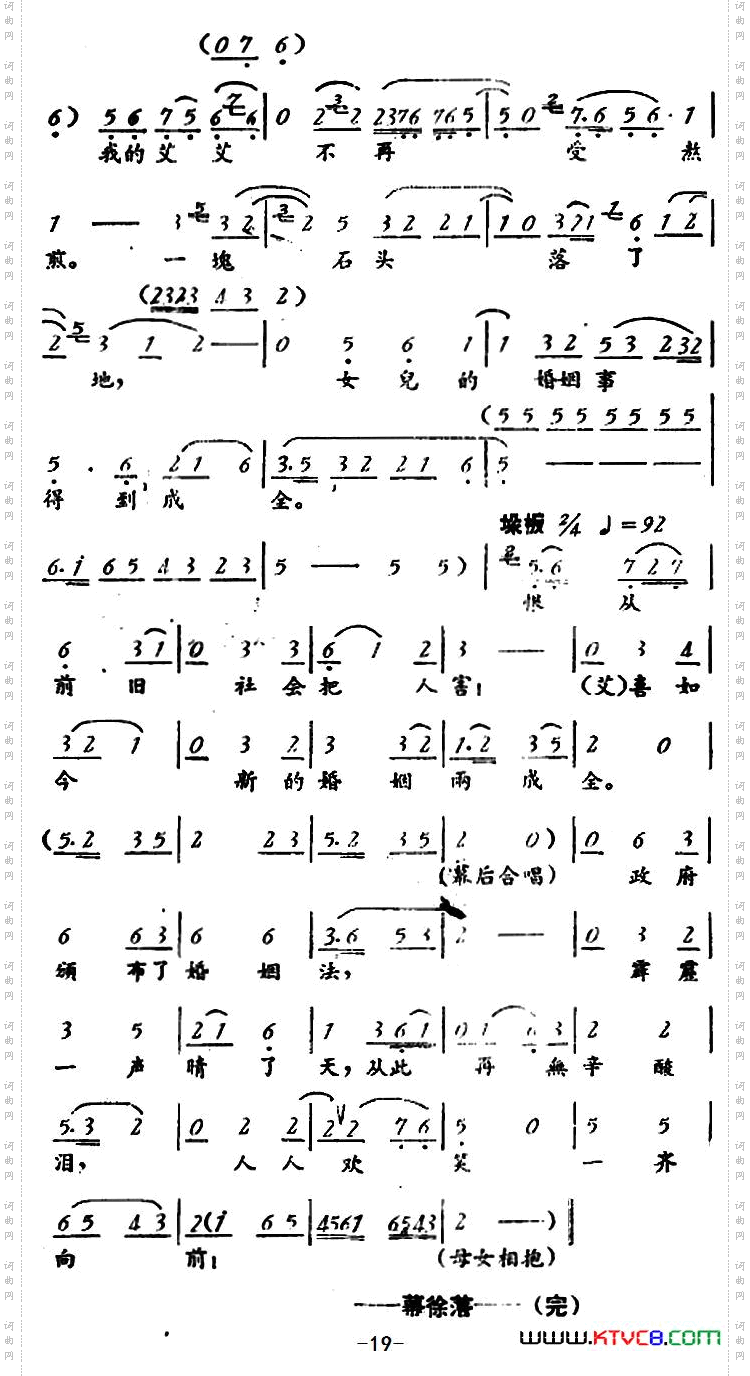 (0 7 6)
6) 5 6 7 5 6 7 6 | 0 2 3 2 2376 765 | 5 0 2 7.6 5 6 · 1 |
我的艾艾 不再 受熬
1 — 3 5 3 2 | 3 2 5 3 2 2 1 | 1 0 3 2 1 1 6 1 2 |
煎。 一塊 石头 落了
(2323 4 3 2)
2 5 3 1 2 — | 0 5 6 1 | 1 3 2 5 3 2 32 |
地， 女兒的 婚姻事
(5 5 5 5 5 5 5 5
5 · 6 2 1 6 | 3.5 3 2 2 1 6 | 5 — — |
得 到，成 全。
垛板 2/4 ♩=92
6.1 6 5 4 3 2 3 | 5 — 5 5) | 2 5.6 7 2 7 |
恨 从
6 · 3 1 | 0 3 3 | 6 1 2 | 3 — | 0 3 4 |
前 旧 社会把 人害； (艾)喜如
3 2 1 | 0 3 2 | 3 3 2 | 1.2 3 5 | 2 0 |
今 新的婚 姻兩成 全。
(5.2 3 5 | 2 2 3 | 5.2 3 5 | 2 0) | 0 6 3 |
(幕后合唱) 政府
6 6 3 | 6 6 | 3.6 5 3 | 2 — | 0 3 2 |
頒 布了婚 姻 法， 霹靂
3 5 | 2 1 6 | 1 3 6 1 | 0 1 6 3 | 2 2 |
一 声晴 了 天，从此 再無辛 酸
5.3 2 | 0 2 2 | 2 2 7 6 | 5 0 | 5 5 |
泪， 人人 欢 笑 一 齐
6 5 4 3 | 2(1 6 5 | 4561 6543 | 2 —)‖
向 前； (母女相抱)
——幕徐落——(完)
-19-
WWW.KTVC8.COM
词曲网